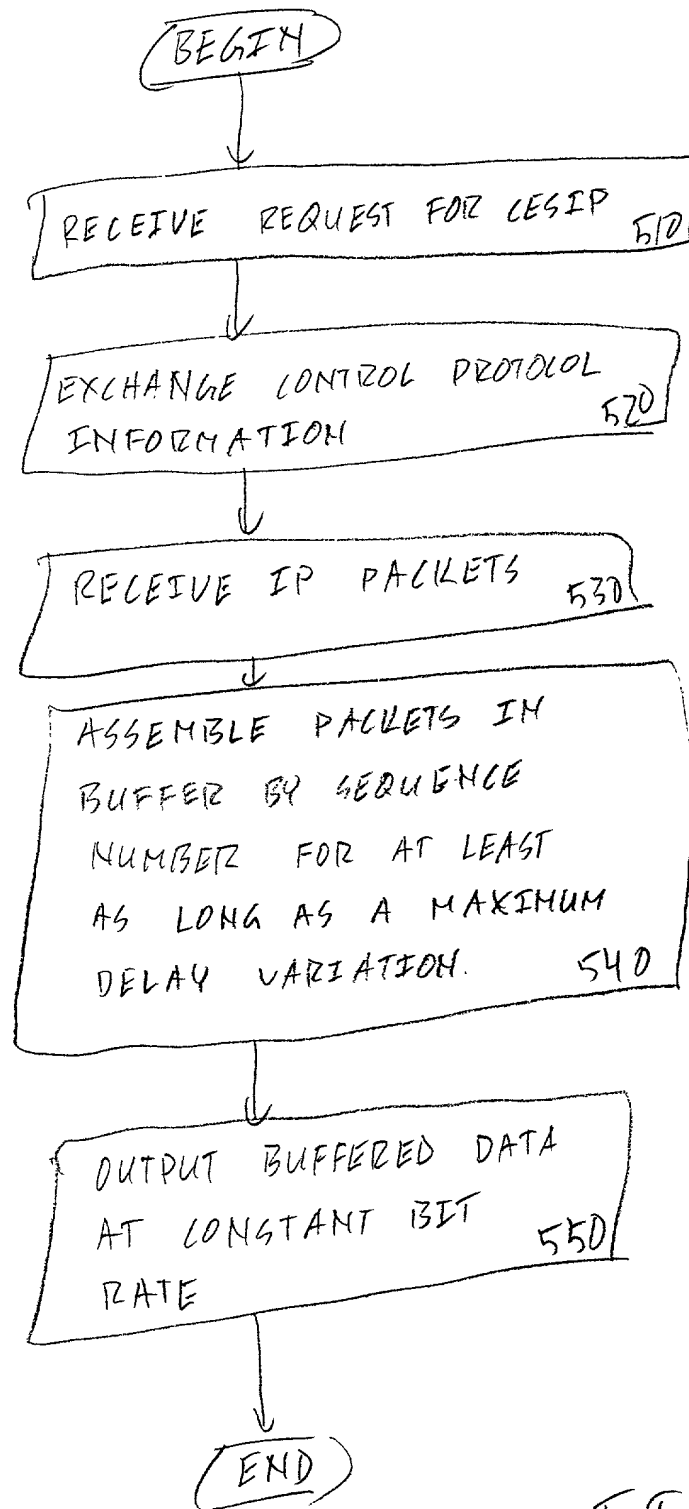 BEGIN
RECEIVE REQUEST FOR CESIP
510
EXCHANGE CONTROL PROTOCOL
INFORMATION
520
RECEIVE IP PACKETS
530
ASSEMBLE PACKETS IN
BUFFER BY SEQUENCE
NUMBER FOR AT LEAST
AS LONG AS A MAXIMUM
DELAY VARIATION. 540
OUTPUT BUFFERED DATA
AT CONSTANT BIT
550
RATE
END